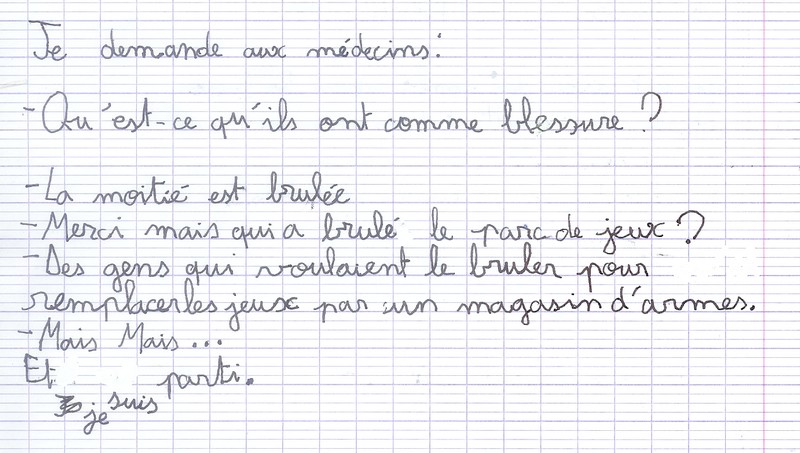 Je demande aux médecins:
- Qu'est-ce qu'ils ont comme blessure ?
- La moitié est brulée
- Merci mais qui a brulé le parc de jeux ?
- Des gens qui voulaient le bruler pour
remplacer les jeux par un magasin d'armes.
- Mais Mais ...
Et parti.
je suis